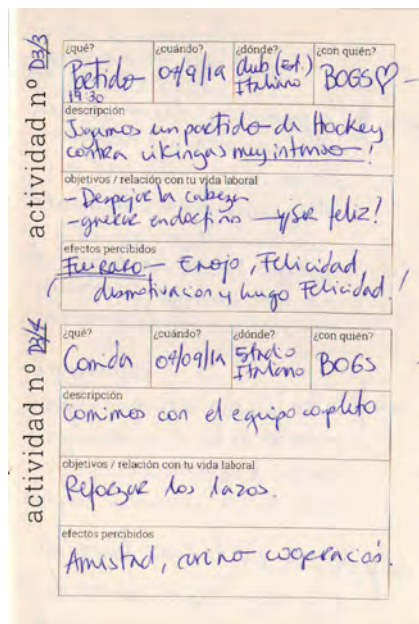 actividad nº D3/3
¿qué? ¿cuándo? ¿dónde? ¿con quién?
Partido 04/9/19 club (Est.) BOGS♡ –
19:30 Italiano
descripción
Jugamos un partido de Hockey
contra vikingas muy intenso!
objetivos / relación con tu vida laboral
– Despejar la cabeza
– generar endorfinas ser feliz!
efectos percibidos
Fue raro – Enojo, Felicidad,
desmotivacion y luego Felicidad!
actividad nº D3/4
¿qué? ¿cuándo? ¿dónde? ¿con quién?
Comida 04/09/19 Estadio BOGS
Italiano
descripción
Comimos con el equipo completo
objetivos / relación con tu vida laboral
Reforzar los lazos.
efectos percibidos
Amistad, cariño cooperación.